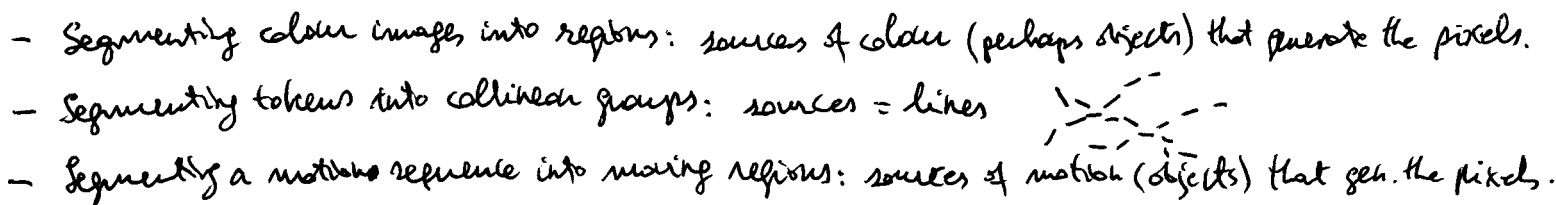 - Segmenting colour images into regions: sources of colour (perhaps objects) that generate the pixels.
- Segmenting tokens into collinear groups: sources = lines
- Segmenting a motion sequence into moving regions: sources of motion (objects) that gen. the pixels.